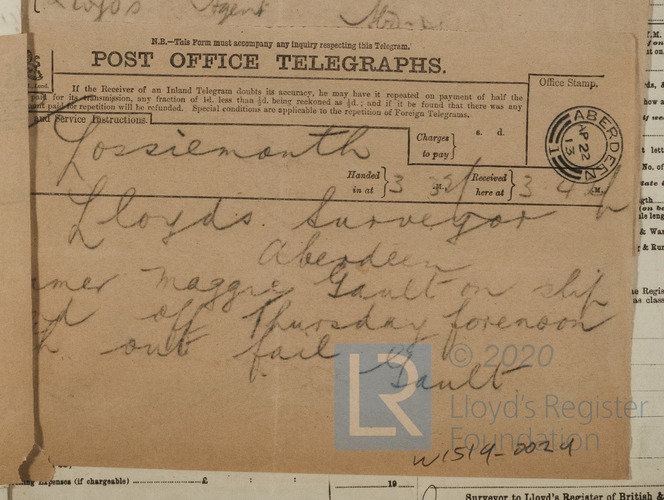 Lloyds Agent
N.B.—This Form must accompany any inquiry respecting this Telegram.
POST OFFICE TELEGRAPHS.
If the Receiver of an Inland Telegram doubts its accuracy, he may have it repeated on payment of half the
paid for its transmission, any fraction of 1d. less than ½d. being reckoned as ½d.; and if it be found that there was any
paid for repetition will be refunded. Special conditions are applicable to the repetition of Foreign Telegrams.
Office Stamp.
and Service Instructions.
Charges to pay
s. d.
ABERDEEN
AP 22
13
Lossiemouth
Handed in at 3 32
.M.
Received here at 3 42
.M.
Lloyds Surveyor
Aberdeen
mer Maggie Gault on slip
off Thursday forenoon
out fail
Gault
LR
© 2020
Lloyd's Register
Foundation
W1519-0029
Expenses (if chargeable)
£ : :
19
Surveyor to Lloyd's Register of British &